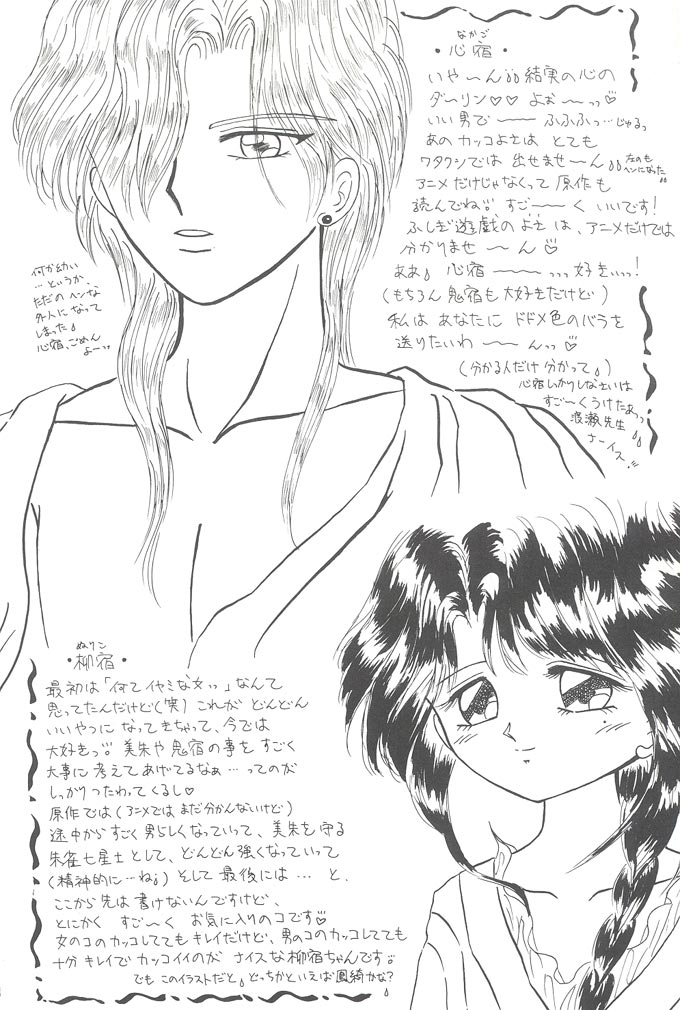 なかご
・心宿・
いや〜ん 結実の心の
ダ〜リン♡♡ よぉ〜〜っっ♡
いい男で 〜〜〜 ふふふっ…じゅるっ
あの カッコよさは とても
ワタクシでは 出せませ〜ん
左のも
ヘンになった
アニメだけじゃなくって 原作も
読んでね すご〜〜く いいです!
ふしぎ遊戯の よさ は、アニメだけでは
分かりませ 〜 ん♡
ああ 心宿 〜〜〜 っっっ 好きぃっっ!
(もちろん 鬼宿も 大好きだけど)
私は あなたに ドドメ色のバラを
送りたいわ 〜〜 んっっ♡
(分かる人だけ 分かって)
心宿しかりしなさいは
すご〜くうけたぁっっ
渡瀬先生
ナーイス!!
何か幼い
…というか、
ただの ヘンな
外人に なって
しまった
心宿、ごめん
よーっっ
ぬりこ
・柳宿・
最初は「何て イヤミな女っっ」なんて
思ってたんだけど(笑) これが どんどん
いいやつに なって きちゃって、今では
大好きっ 美朱や 鬼宿の事を すごく
大事に 考えて あげてるなぁ … ってのが
しっかり つたわって くるし♡
原作では(アニメでは まだ分かんないけど)
途中から すごく 男らしく なっていって、美朱を 守る
朱雀七星士として、どんどん強くなって いって
(精神的に…ね) そして 最後には … と、
ここから 先は 書けないんですけど、
とにかく すご〜く お気に入りのコです♡
女のコの カッコしてても キレイだけど、男のコの カッコしてても
十分 キレイで カッコイイのが ナイスな 柳宿ちゃんです
でも このイラストだと どっちかといえば 鳳綺かな?